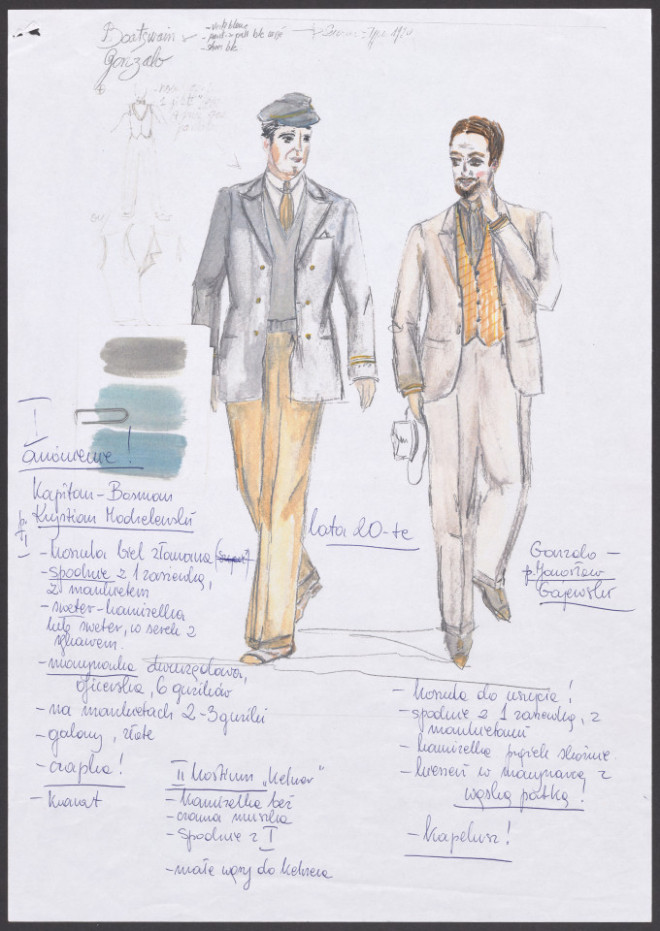 Boatswain
Gonzalo
I
Kapitan - Bosman
Krystian Modzelewski
II
- koszula biel złamana
- spodnie z 1 zaszewką,
z mankietem
- sweter - kamizelka
lub sweter, w serek z
rękawem.
- marynarka dwurzędowa,
oficerska, 6 guzików
- na mankietach 2-3 guziki
- galony, złote
- czapka!
- krawat
lata 20-te
II kostium "kelner"
- kamizelka beż
- czarna muszka
- spodnie z I
- małe wąsy do kelnera
Gonzalo -
p. Jarosław
Gajewski
- koszula do uszycia!
- spodnie z 1 zaszewką, z
mankietami
- kamizelka prążek skośnie
- kieszeń w marynarce z
wąską patką!
- kapelusz!